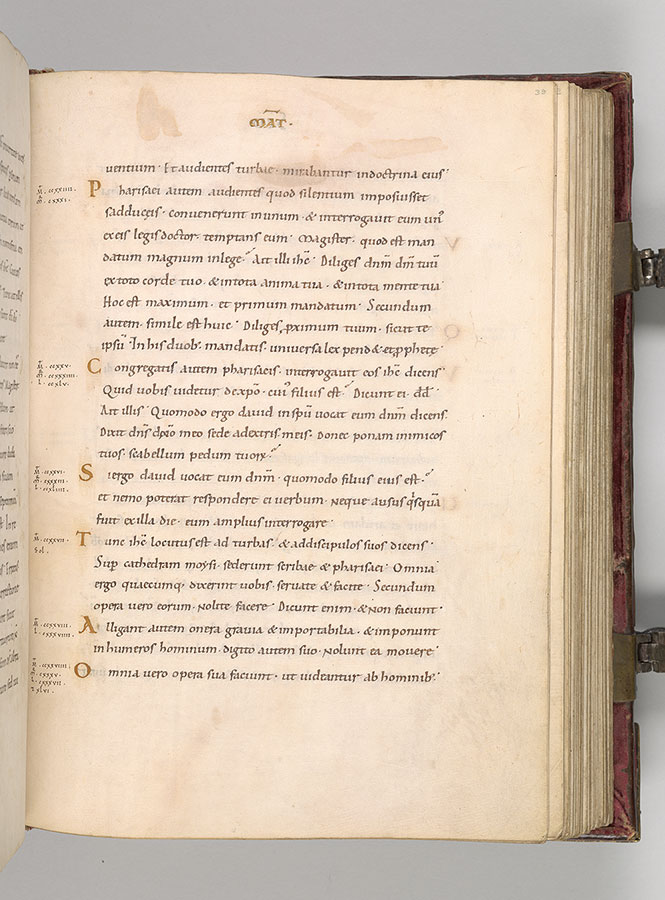 39
MAT·
uentium· Et audientes turbae· mirabantur indoctrina eius·
Pharisaei autem audientes quod silentium imposuisset
sadduceis· conuenerunt inunum· & interrogauit eum un'
ex eis legis doctor· temptans eum· Magister· quod est man
datum magnum inlege? Ait illi ihc· Diliges dnm dm tuū
ex toto corde tuo· & intota anima tua· & intota mente tua·
Hoc est maximum· et primum mandatum· Secundum
autem· simile est huic· Diliges pximum tuum· sicut te
ipsū· In his duob; mandatis uniuersa lex pend& et pphete·
Congregatis autem pharisaeis· interrogauit eos ihc dicens·
Quid uobis uidetur dexpo· cui' filius est? Dicunt ei· dd·
Ait illis· Quomodo ergo dauid inspu uocat eum dnm dicens·
Dixit dns dno meo sede adextris meis· Donec ponam inimicos
tuos· scabellum pedum tuorꝝ?
Si ergo dauid uocat eum dnm· quomodo filius eius est?
et nemo poterat respondere ei uerbum· Neque ausus qsquā
fuit ex illa die· eum amplius interrogare·
Tunc ihc locutus est ad turbas· & addiscipulos suos dicens·
Sup cathedram moysi· sederunt scribae & pharisaei· Omnia
ergo quaecumq; dixerint uobis· seruate & facite· Secundum
opera uero eorum· Nolite facere· Dicunt enim· & Non faciunt·
Alligant autem onera grauia & importabilia· & imponunt
in humeros hominum· digito autem suo· Nolunt ea mouere·
Omnia uero opera sua faciunt· ut uideantur ab hominib;